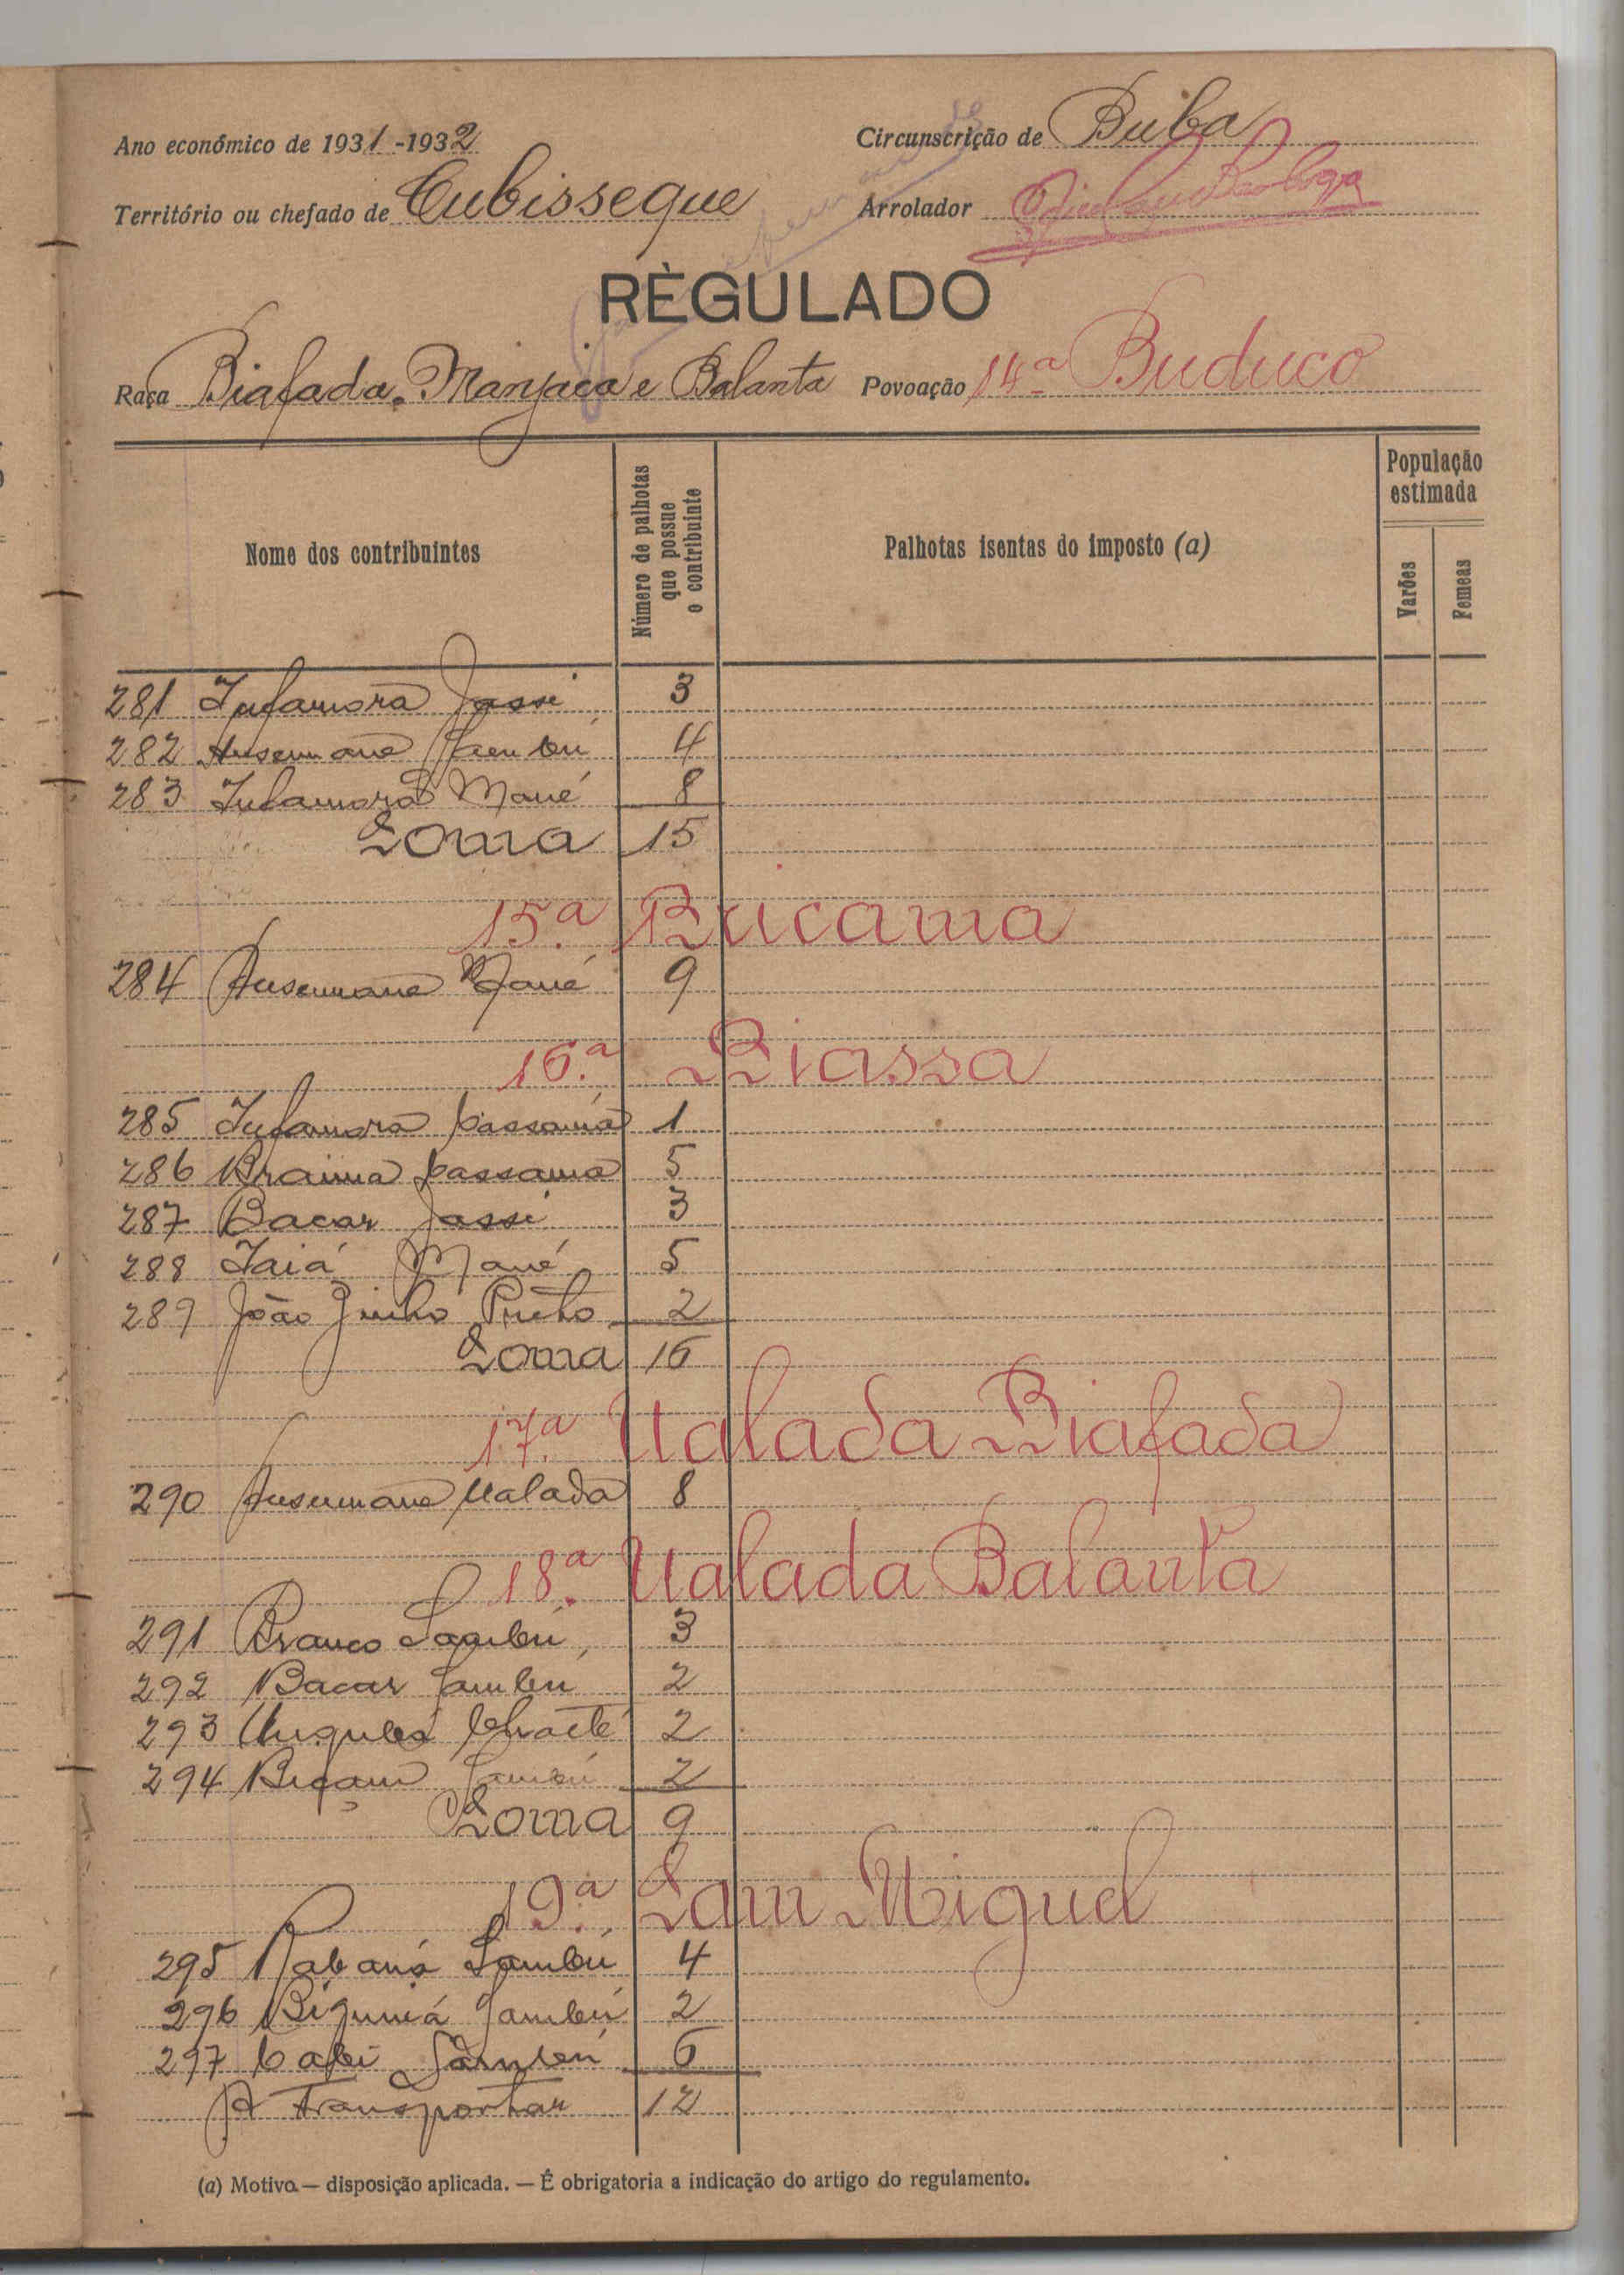 Ano económico de 1931-1932
Circunscrição de Buba
Território ou chefado de Cubisseque
Arrolador
RÈGULADO
Raça Biafada. Manjaca e Balanta Povoação 14.ª Buduco
Nome dos contribuintes
Número de palhotas que possue o contribuinte
Palhotas isentas do imposto (a)
População estimada
Varões
Femeas
281 Infamora Jassi 3
282 Ansumane Jambú 4
283 Infamora Mané 8
Soma 15
15.ª Bucama
284 Ansumane Mané 9
16.ª Biassa
285 Infamora Cassamá 1
286 Braima Cassamá 5
287 Bacar Jassi 3
288 Iaiá Mané 5
289 João Preto 2
Soma 16
17.ª Ualada Biafada
290 Ansumane Ualada 8
18.ª Ualada Balanta
291 Branco Sambú 3
292 Bacar Sambú 2
293 2
294 Sambú 2
Soma 9
19.ª Sam Miguel
295 Sambú 4
296 Sambú 2
297 Sambú 6
A Transportar 12
(a) Motivo — disposição aplicada. — É obrigatoria a indicação do artigo do regulamento.